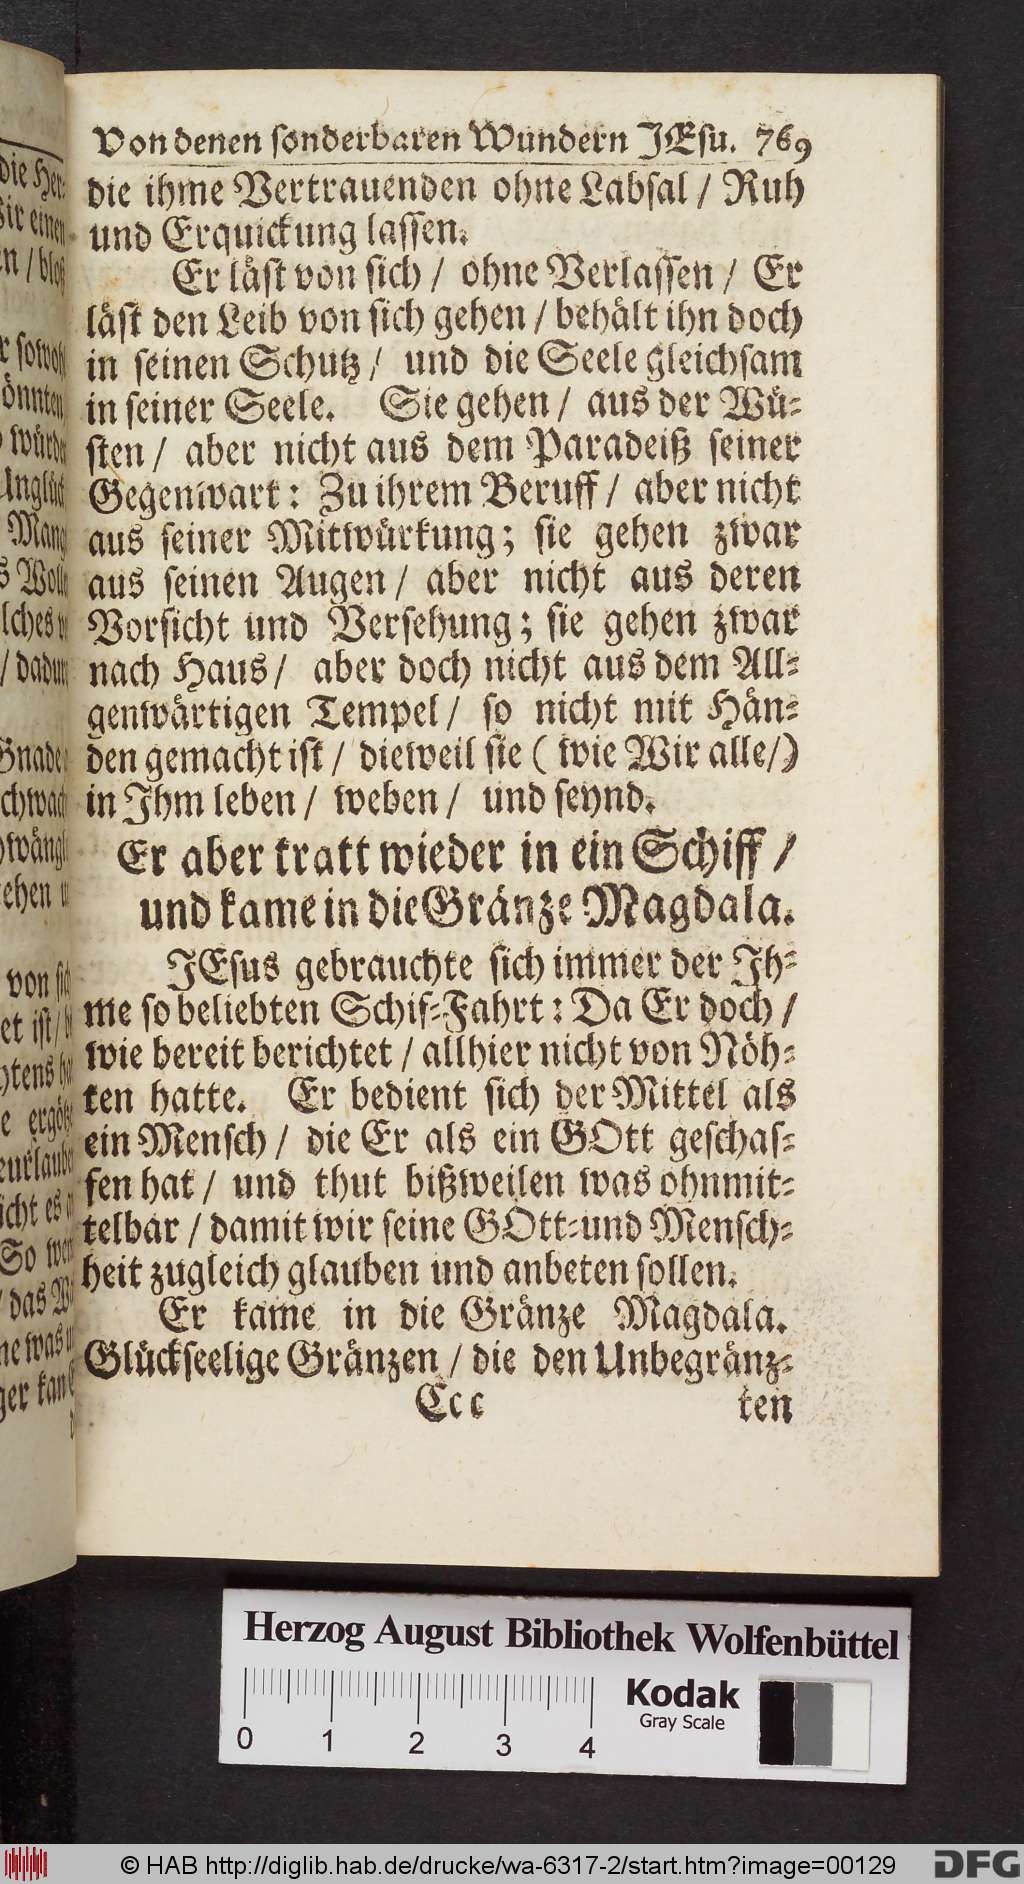 Von denen sonderbaren Wundern JEsu. 769
die ihme Vertrauenden ohne Labsal / Ruh
und Erquickung lassen.
Er läst von sich / ohne Verlassen / Er
läst den Leib von sich gehen / behält ihn doch
in seinen Schutz / und die Seele gleichsam
in seiner Seele. Sie gehen / aus der Wü-
sten / aber nicht aus dem Paradeiß seiner
Gegenwart: Zu ihrem Beruff / aber nicht
aus seiner Mitwürkung; sie gehen zwar
aus seinen Augen / aber nicht aus deren
Vorsicht und Versehung; sie gehen zwar
nach Haus / aber doch nicht aus dem All-
genwärtigen Tempel / so nicht mit Hän-
den gemacht ist / dieweil sie ( wie Wir alle/)
in Jhm leben / weben / und seynd.
Er aber tratt wieder in ein Schiff /
und kame in die Gränze Magdala.
JEsus gebrauchte sich immer der Jh-
me so beliebten Schif-Fahrt: Da Er doch /
wie bereit berichtet / allhier nicht von Nöh-
ten hatte. Er bedient sich der Mittel als
ein Mensch / die Er als ein GOtt geschaf-
fen hat / und thut bißweilen was ohnmit-
telbar / damit wir seine GOtt-und Mensch-
heit zugleich glauben und anbeten sollen.
Er kame in die Gränze Magdala.
Glückseelige Gränzen / die den Unbegränz-
Ccc ten
die Her-
einen
/ bloß
sowohl
könnten
würde
Unglück
Mang
Gnade
von sich
et ist /
ergötz
eurlaub
icht es
So
das
ne was
ger kan
Herzog August Bibliothek Wolfenbüttel
0 1 2 3 4
Kodak
Gray Scale
© HAB http://diglib.hab.de/drucke/wa-6317-2/start.htm?image=00129
DFG